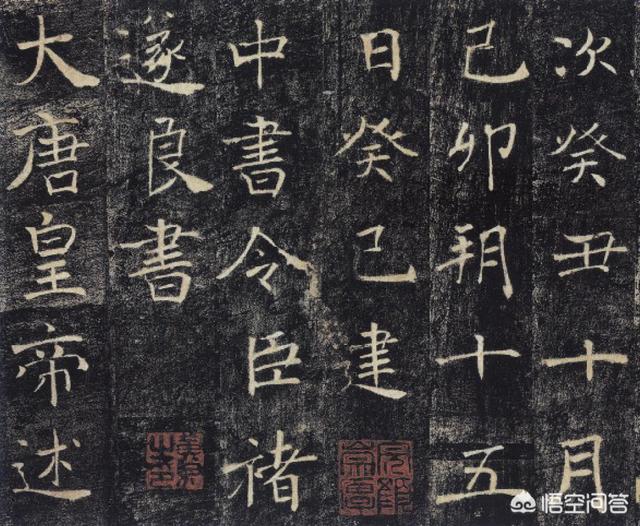 次癸丑十月
己卯朔十五
日癸巳建
中書令臣褚
遂良書
大唐皇帝述
悟空问答